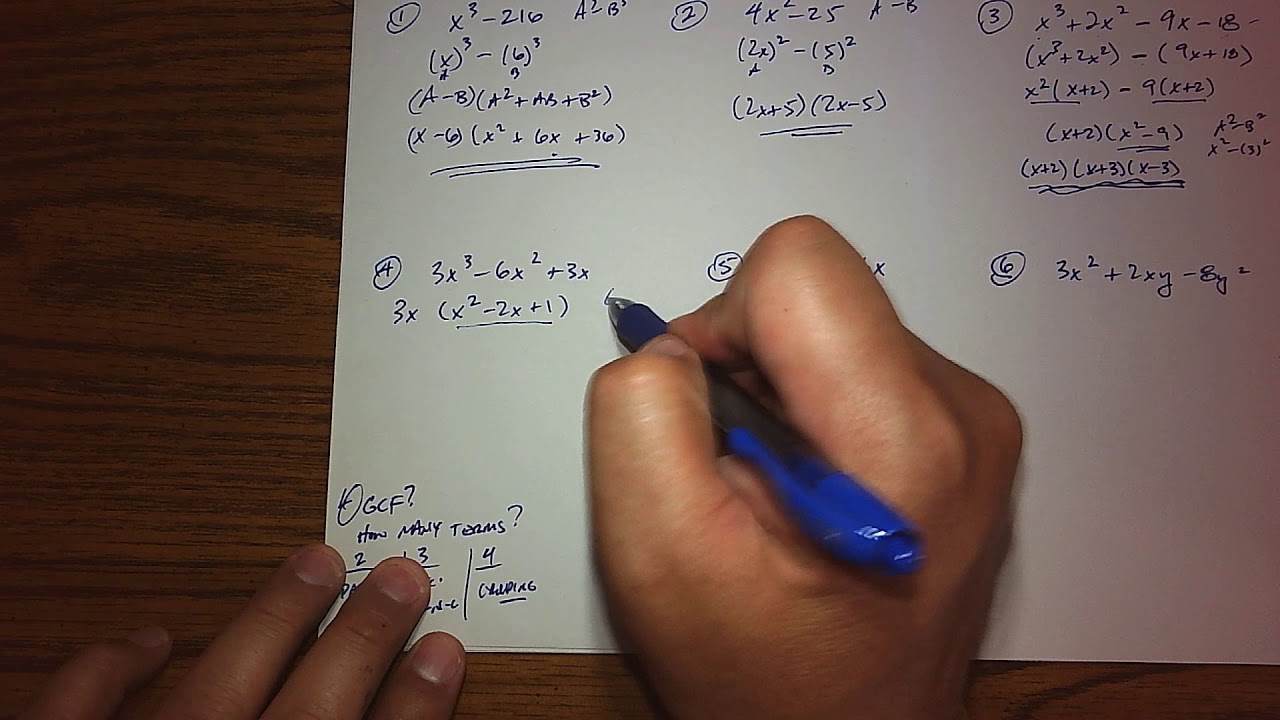 ① x³ - 216 A³-B³
(x)³ - (6)³
A B
(A-B)(A²+AB+B²)
(x-6)(x² + 6x + 36)
② 4x² - 25 A - B
(2x)² - (5)²
A B
(2x+5)(2x-5)
③ x³ + 2x² - 9x - 18
(x³+2x²) - (9x+18)
x²(x+2) - 9(x+2)
(x+2)(x²-9) A²-B²
x²-(3)²
(x+2)(x+3)(x-3)
④ 3x³ - 6x² + 3x
3x (x²-2x+1)
⑤ x
⑥ 3x² + 2xy - 8y²
GCF?
HOW MANY TERMS?
2 | 3 | 4